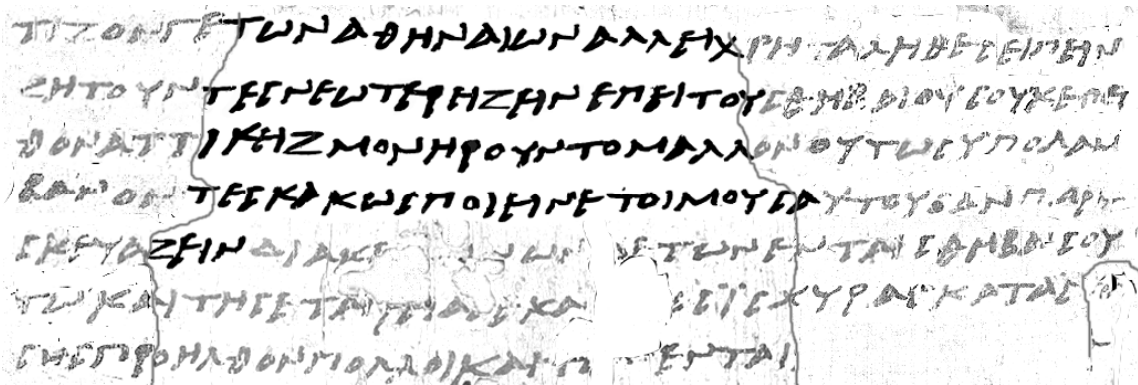 ΤΙΖΟΝΓΕΤΩΝΑΘΗΝΑΙΩΝΑΛΛΕΙΧΡΗΤΑΛΗΘΕϹΕΙΠΕΙΝ
ΖΗΤΟΥΝΤΕϹΝΕΩΤΕΡΕΙΖΕΙΝΕΠΕΙΤΟΥϹΘΗΒΑΙΟΥϹΟΥΚΕΠΕΙ
ΘΟΝΑΤΤΙΚΕΙΖΜΟΝΗΡΟΥΝΤΟΜΑΛΛΟΝΟΥΤΩϹΥΠΟΛΑΜ
ΒΑΝΟΝΤΕϹΚΑΚΩϹΠΟΙΕΙΝΕΤΟΙΜΟΥϹΑΥΤΟΥϹΑΝΠΑΡΕ
ϹΚΕΥΑΖΕΙΝΔΙΑΚΕ ΝΩΝ ΔΕΤΩΝΕΝΤΑΙϹΘΗΒΑΙϹΟΥ
ΤΩΚΑΙΤΗϹΕΤΑΙΡΙΑϹΕΚΑ ΕϹΙϹΧΥΡΑϹΚΑΤΑϹ
ϹΗϹΠΡΟΗΛΘΟΝΠΟΛΛΟΙΚΑΙΠ ΕΝΤΑΙ